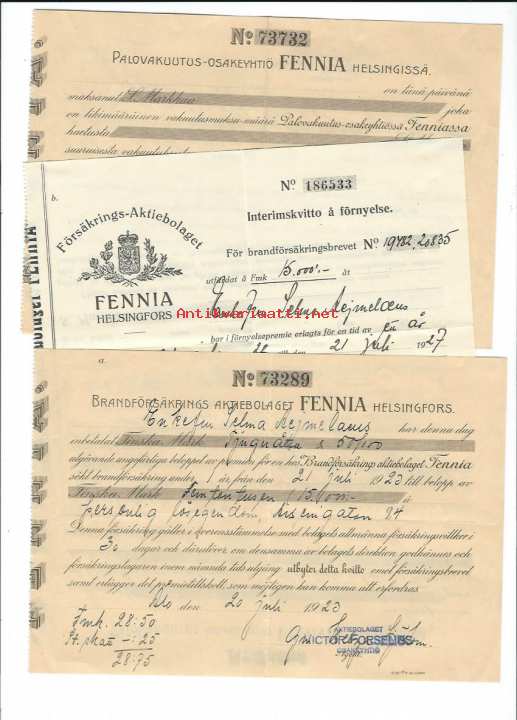 No 73732
PALOVAKUUTUS-OSAKEYHTIÖ FENNIA HELSINGISSÄ.
on tänä päivänä
maksanut S. Markkua joka
on likimääräinen vakuutusmaksu-määrä Palovakuutus-osakeyhtiössä Fenniassa
haetusta
suuruisesta
b.
No 186533
Försäkrings-Aktiebolaget
FENNIA
HELSINGFORS
Interimskvitto å förnyelse.
För brandförsäkringsbrevet No 19482, 20835
utfärdat å Fmk 15.000:- åt
Selma Nejmelæus
har i förnyelsepremie erlagts för en tid av ett år
till den 21 juli 1927
Antikvariaatti.net
bolaget FENNIA
a.
No 73289
BRANDFÖRSÄKRINGS AKTIEBOLAGET FENNIA HELSINGFORS.
Enkefru Selma Nejmelaeus har denna dag
inbetalat Finska Mark Tjuguåtta & 50/100
utgörande ungefärliga beloppet av premien för en hos Brandförsäkrings aktiebolaget Fennia
sökt brandförsäkring under 1 år från den 21 juli 1923 till belopp av
Finska Mark Femtontusen (15.000:-) å
personlig lösegendom,
Denna försäkring gäller i överensstämmelse med bolagets allmänna försäkringsvillkor i
30 dagar och därutöver om densamma av bolagets direktion godkännes och
försäkringstagaren inom nämnda tids utgång utbyter detta kvitto emot försäkringsbrevet
samt erlägger det premietillskott som möjligen kan komma att erfordras
Åbo den 20 juli 1923
Fmk. 28:50
St. skatt -: 25
28:75
AKTIEBOLAGET
VICTOR FORSELIUS
OSAKEYHTIÖ